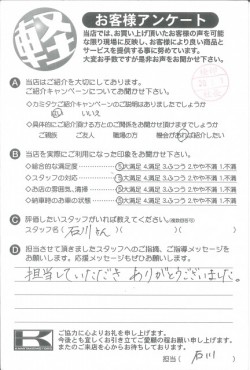 軽
お客様アンケート
当店では、お買い上げ頂いたお客様の声を可能
な限り現場に反映し、お客様により良い商品と
サービスを提供する事に努めています。
大変お手数ですが是非お声をお聞かせ下さい。
A 当店はご紹介を大切にしております。
ご紹介キャンペーンについてお聞かせ下さい。
◇カミタケご紹介キャンペーンのご説明はありましたでしょうか
はい いいえ
◇具体的にご紹介頂ける方とのご関係をお聞かせ頂けますでしょうか
ご親族 ご友人 職場の方 機会があれば紹介したい
B 当店を実際にご利用になった印象をお聞かせ下さい。
◇総合的な満足度 5大満足 4.満足 3.ふつう 2.やや不満 1.不満
◇スタッフの対応 5大満足 4.満足 3.ふつう 2.やや不満 1.不満
◇お店の雰囲気、清掃 5大満足 4.満足 3.ふつう 2.やや不満 1.不満
◇納車時のお車の状態 5大満足 4.満足 3.ふつう 2.やや不満 1.不満
C 辞価したいスタッフがいれば教えてください。(複数回答可)
スタッフ名( 石川さん )( )
D 担当させて頂きましたスタッフへのご指摘、ご指導メッセージを
お願いします。応援メッセージもぜひお願いします。
担当していただき ありがとうございました。
K
ご協力に心よりお礼を申し上げます。
今後とも宜しくお引き立てご愛顧の程お願い申し上げます。
またのご来店を心からお待ちしております。
担当( 石川 )